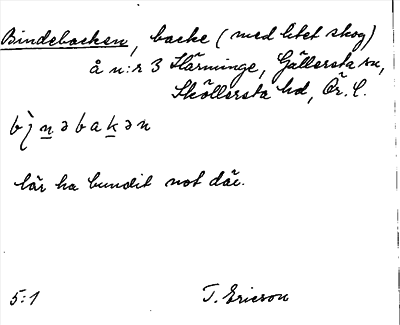 Bindebacken, backe (med litet skog)
å n:r 3 Härminge, Gällersta sn,
Sköllersta hd, Ör. l.
lär ha bundit not där.
5:1 T. Ericson